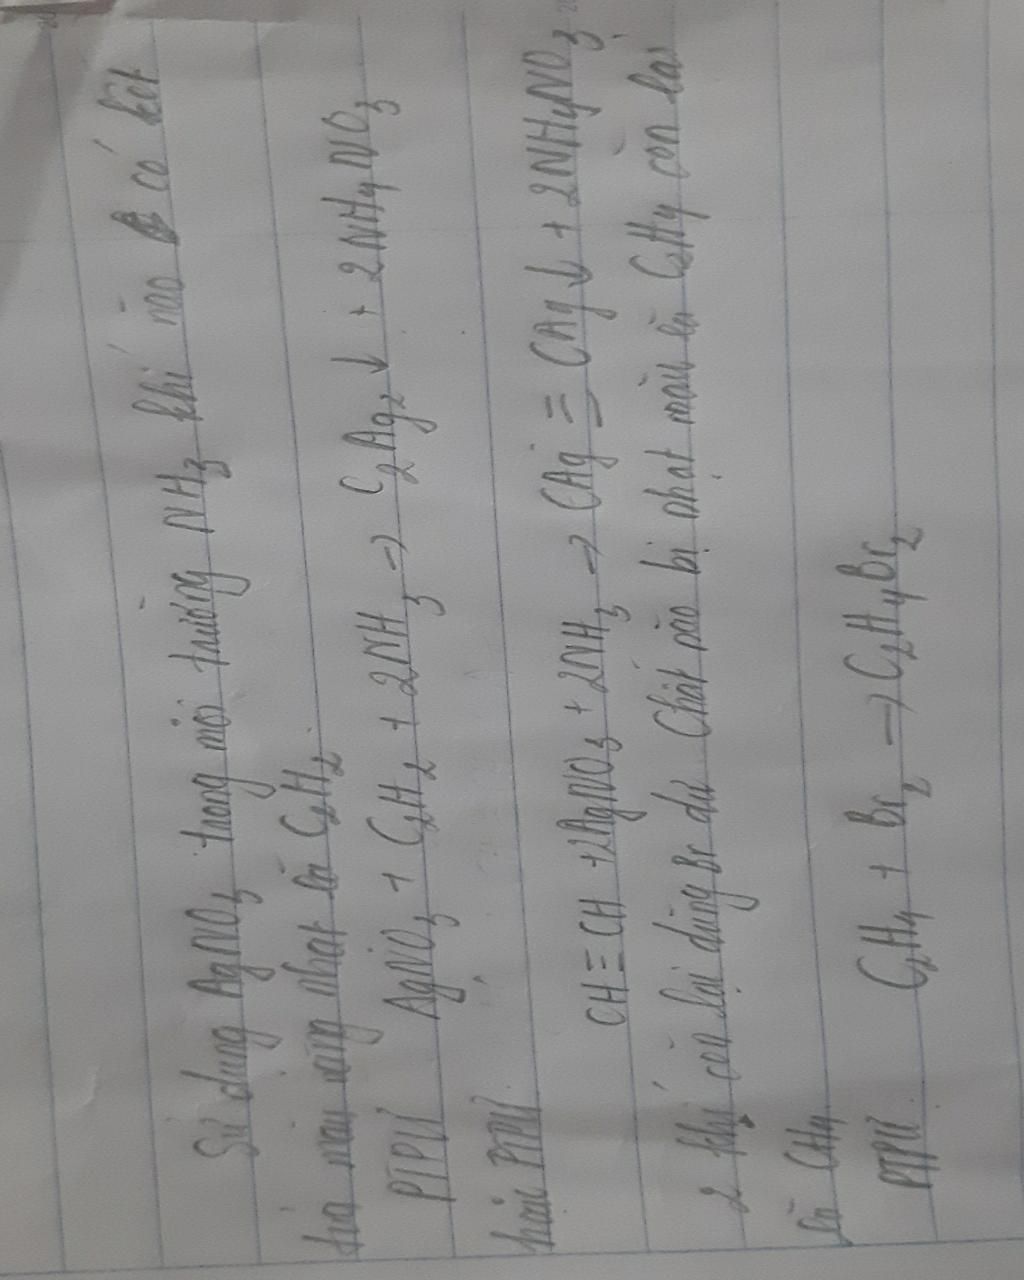 Sử dụng AgNO3 trong môi trường NH3 khí nào có kết
tủa màu vàng nhạt là C2H2
PTPU AgNO3 + C2H2 + 2NH3 → C2Ag2 ↓ + 2NH4NO3
hoặc PTPU
CH ≡ CH + 2AgNO3 + 2NH3 → CAg ≡ CAg ↓ + 2NH4NO3
2 khí còn lại dùng Br dư Chất nào bị nhạt màu là C2H4 còn lại
là CH4
PTPU C2H4 + Br2 → C2H4Br2